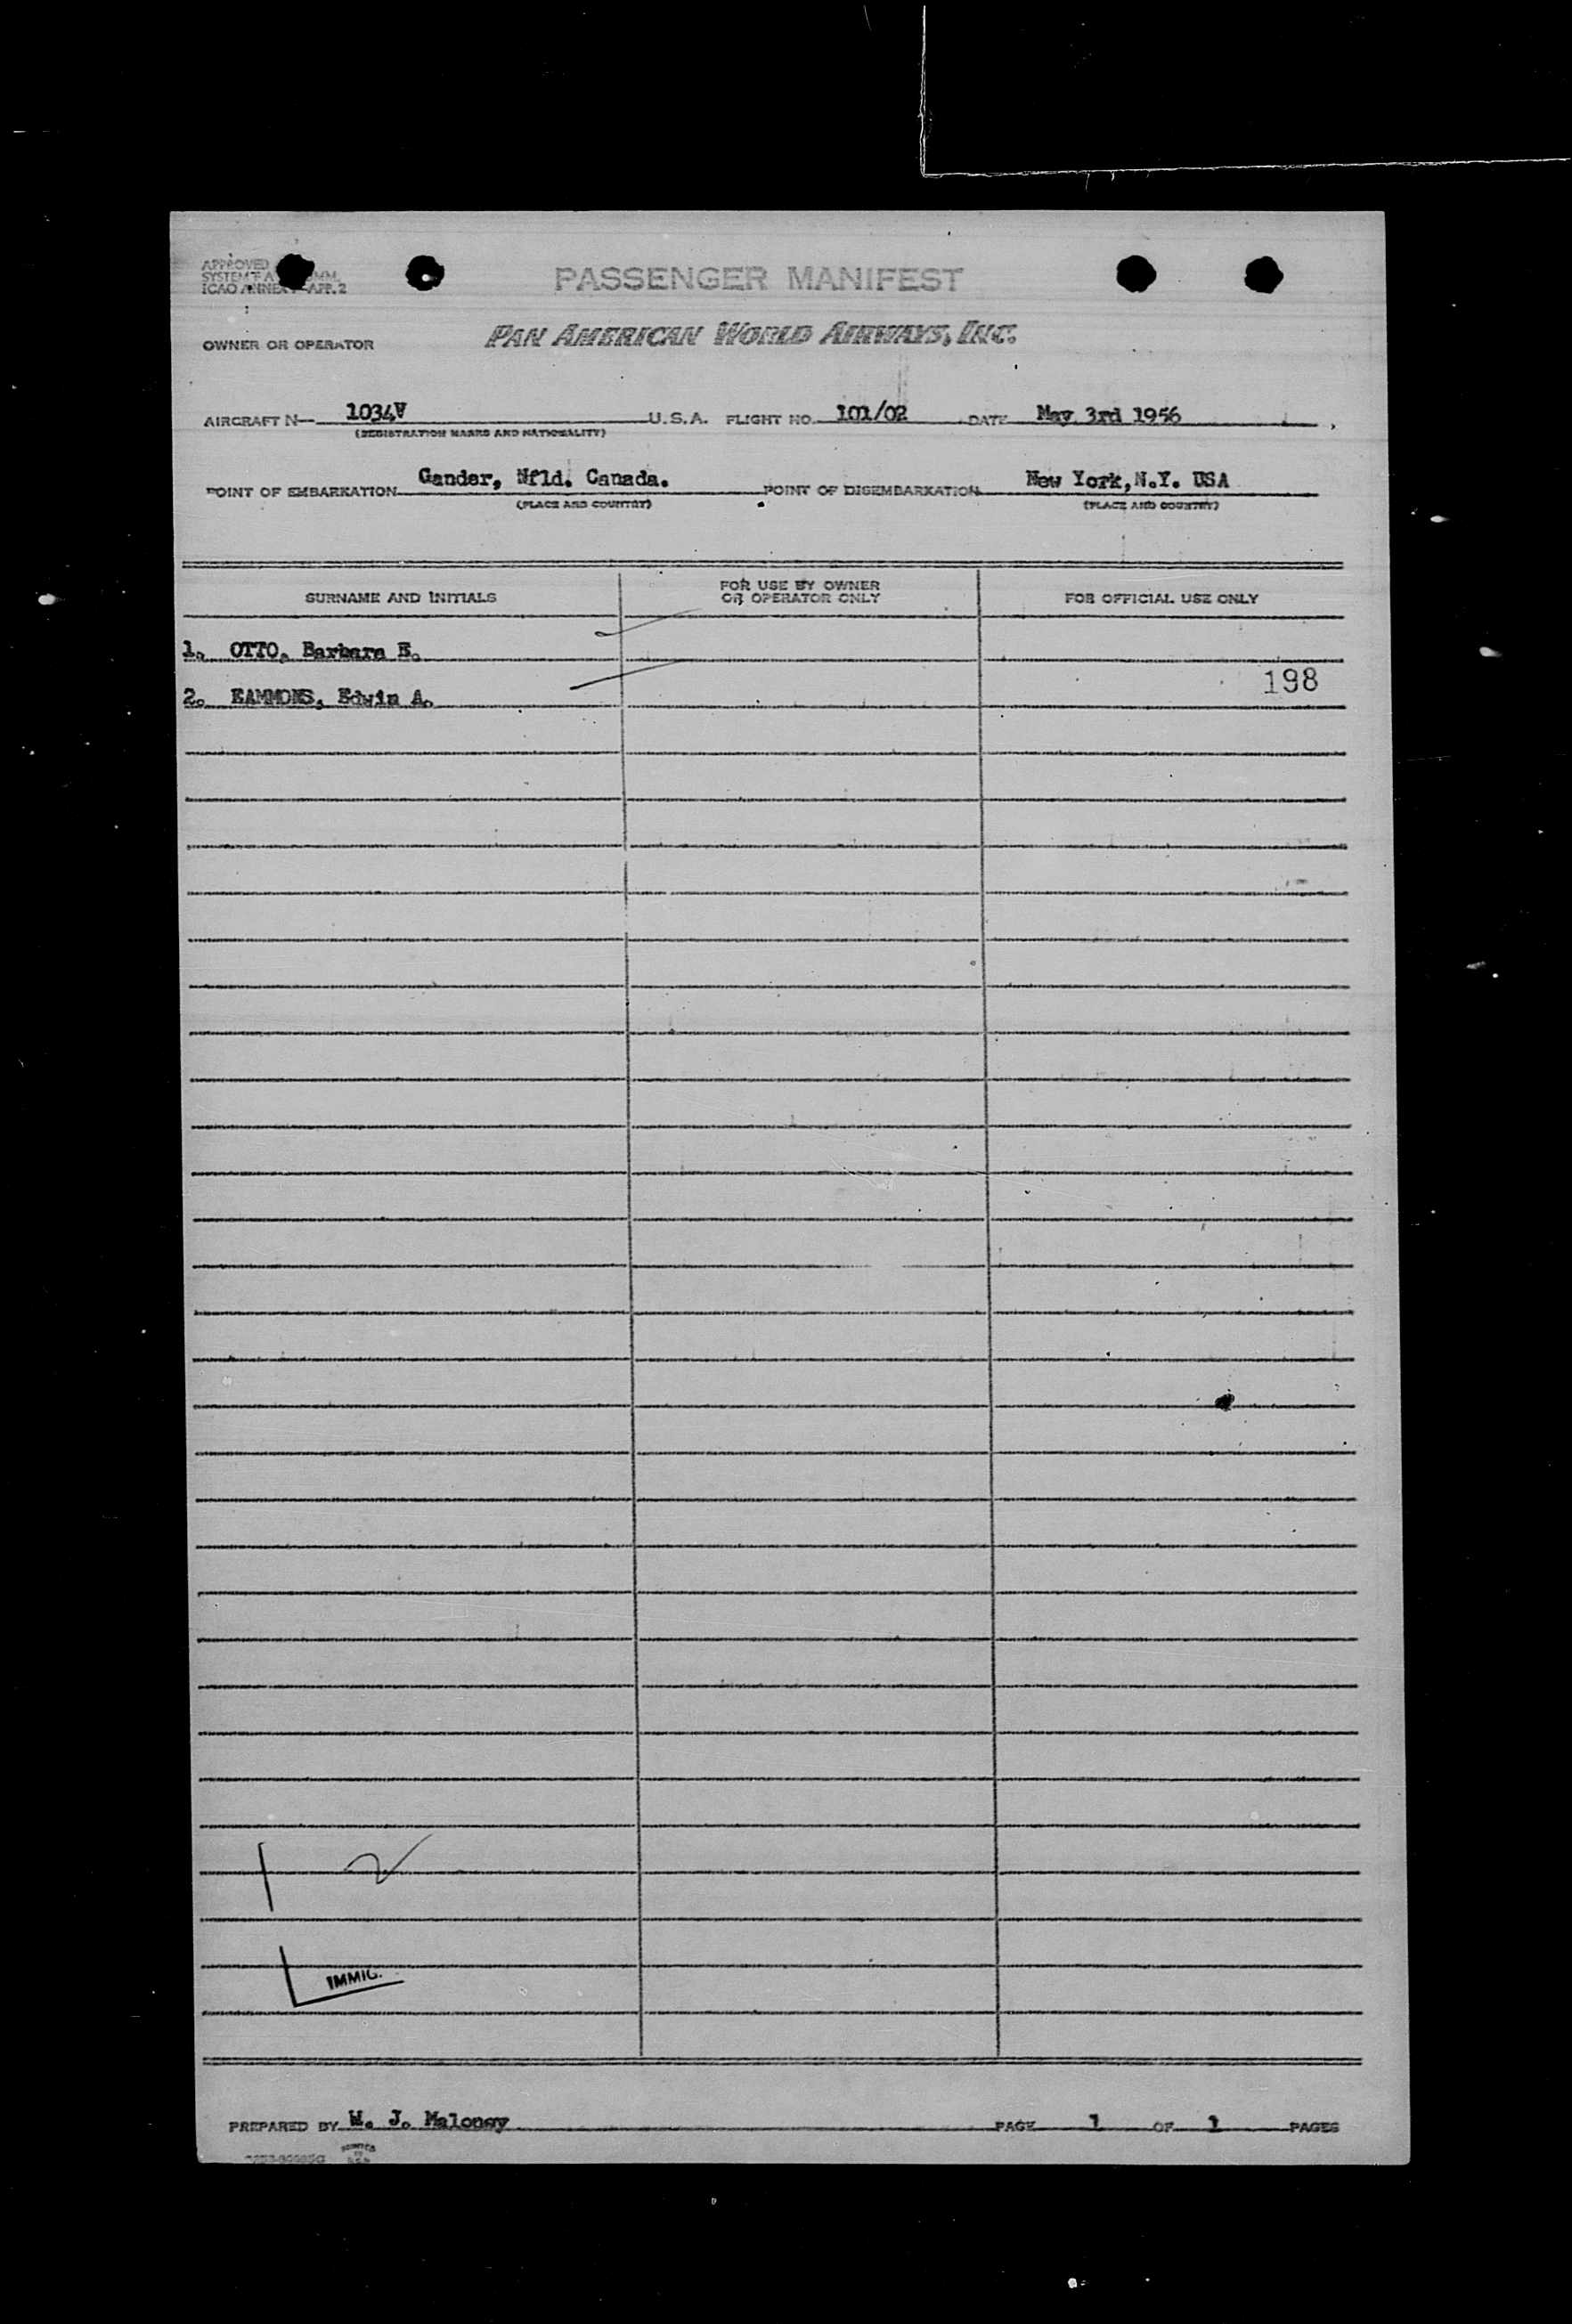 APPROVED
SYSTEM
ICAO ANNEX APP. 2
PASSENGER MANIFEST
OWNER OR OPERATOR PAN AMERICAN WORLD AIRWAYS, INC.
AIRCRAFT N— 1034V U.S.A. FLIGHT NO. 101/02 DATE May 3rd 1956
(REGISTRATION MARKS AND NATIONALITY)
POINT OF EMBARKATION Gander, Nfld. Canada. POINT OF DISEMBARKATION New York, N.Y. USA
(PLACE AND COUNTRY) (PLACE AND COUNTRY)
SURNAME AND INITIALS FOR USE BY OWNER OR OPERATOR ONLY FOR OFFICIAL USE ONLY
1. OTTO, Barbara E.
2. EAMMONS, Edwin A. 198
1 2
IMMIG.
PREPARED BY W. J. Maloney PAGE 1 OF 1 PAGES